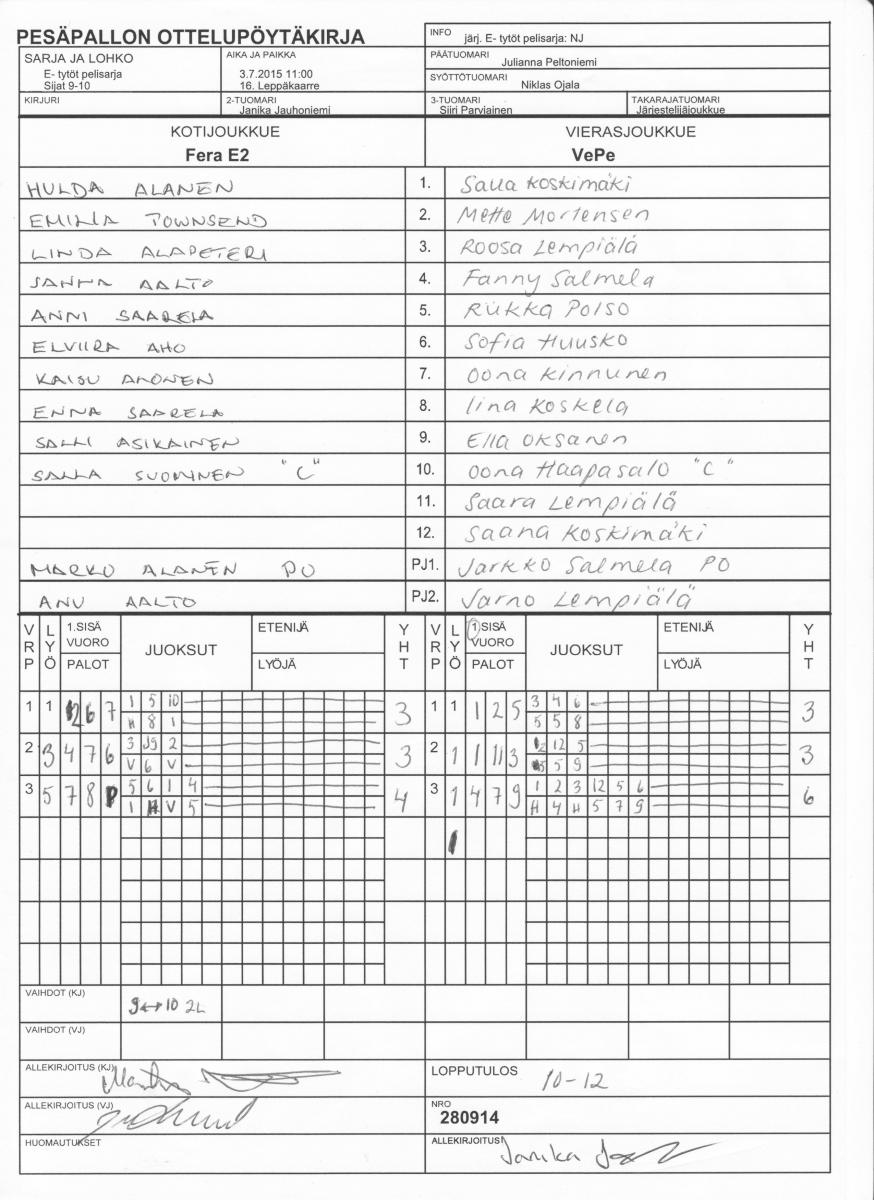 PESÄPALLON OTTELUPÖYTÄKIRJA
INFO järj. E- tytöt pelisarja: NJ
PÄÄTUOMARI Julianna Peltoniemi
SYÖTTÖTUOMARI Niklas Ojala
SARJA JA LOHKO
E- tytöt pelisarja
Sijat 9-10
AIKA JA PAIKKA
3.7.2015 11:00
16. Leppäkaarre
KIRJURI
2-TUOMARI
Janika Jauhoniemi
3-TUOMARI
Siiri Parviainen
TAKARAJATUOMARI
Järjestelijäjoukkue
KOTIJOUKKUE VIERASJOUKKUE
Fera E2 VePe
HULDA ALANEN 1. Salla Koskimäki
EMILIA TOWNSEND 2. Mette Mortensen
LINDA ALAPETERI 3. Roosa Lempiälä
SANNA AALTO 4. Fanny Salmela
ANNI SAARELA 5. Riikka Poiso
ELVIIRA AHO 6. Sofia Huusko
KAISU AHONEN 7. Oona Kinnunen
ENNA SAARELA 8. Iina Koskela
SALLI ASIKAINEN 9. Ella Oksanen
SALLA SUOMINEN "C" 10. Oona Haapasalo "C"
11. Saara Lempiälä
12. Saana Koskimäki
MARKO ALANEN PJ1. Jarkko Salmela PO
ANU AALTO PJ2. Jarno Lempiälä
VRP LYÖ 1.SISÄ VUORO PALOT JUOKSUT ETENIJÄ LYÖJÄ YHT VRP LYÖ 1.SISÄ VUORO PALOT JUOKSUT ETENIJÄ LYÖJÄ YHT
1 1 2 6 7 1 5 10 3 1 1 1 2 5 3 4 6 3
H 8 1 5 5 8
2 3 4 7 6 3 9 2 3 2 1 1 11 3 2 12 5 3
V 6 V 5 5 9
3 5 7 8 P 5 6 1 4 4 3 1 4 7 9 1 2 3 12 5 6 6
1 H V 5 H 4 H 5 7 9
VAIHDOT (KJ) 9↔10 2L
VAIHDOT (VJ)
ALLEKIRJOITUS (KJ)
LOPPUTULOS 10-12
ALLEKIRJOITUS (VJ)
NRO
280914
HUOMAUTUKSET
ALLEKIRJOITUS Janika